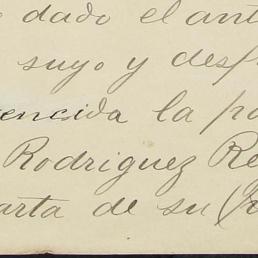 dado el ant
suyo y desp
encida la pa
Rodriguez Re
arta de su